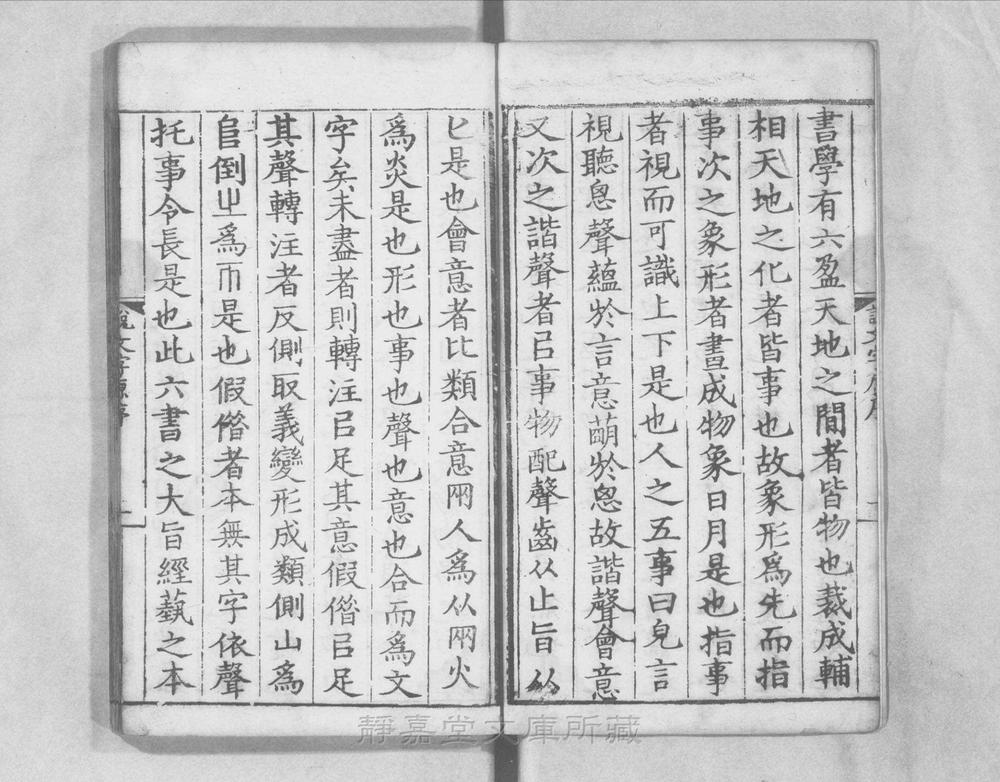 書學有六盈天地之間者皆物也裁成輔
相天地之化者皆事也故象形爲先而指
事次之象形者畫成物象日月是也指事
者視而可識上下是也人之五事曰皃言
視聽恖聲蘊於言意萌於恖故諧聲會意
又次之諧聲者㠯事物配聲齒从止旨从
匕是也會意者比類合意兩人爲从兩火
爲炎是也形也事也聲也意也合而爲文
字矣未盡者則轉注㠯足其意假僭㠯足
其聲轉注者反側取義變形成類側山爲
𨸏倒㞢爲帀是也假僭者本無其字依聲
托事令長是也此六書之大旨經蓺之本
說文字源序
二
靜嘉堂文庫所藏